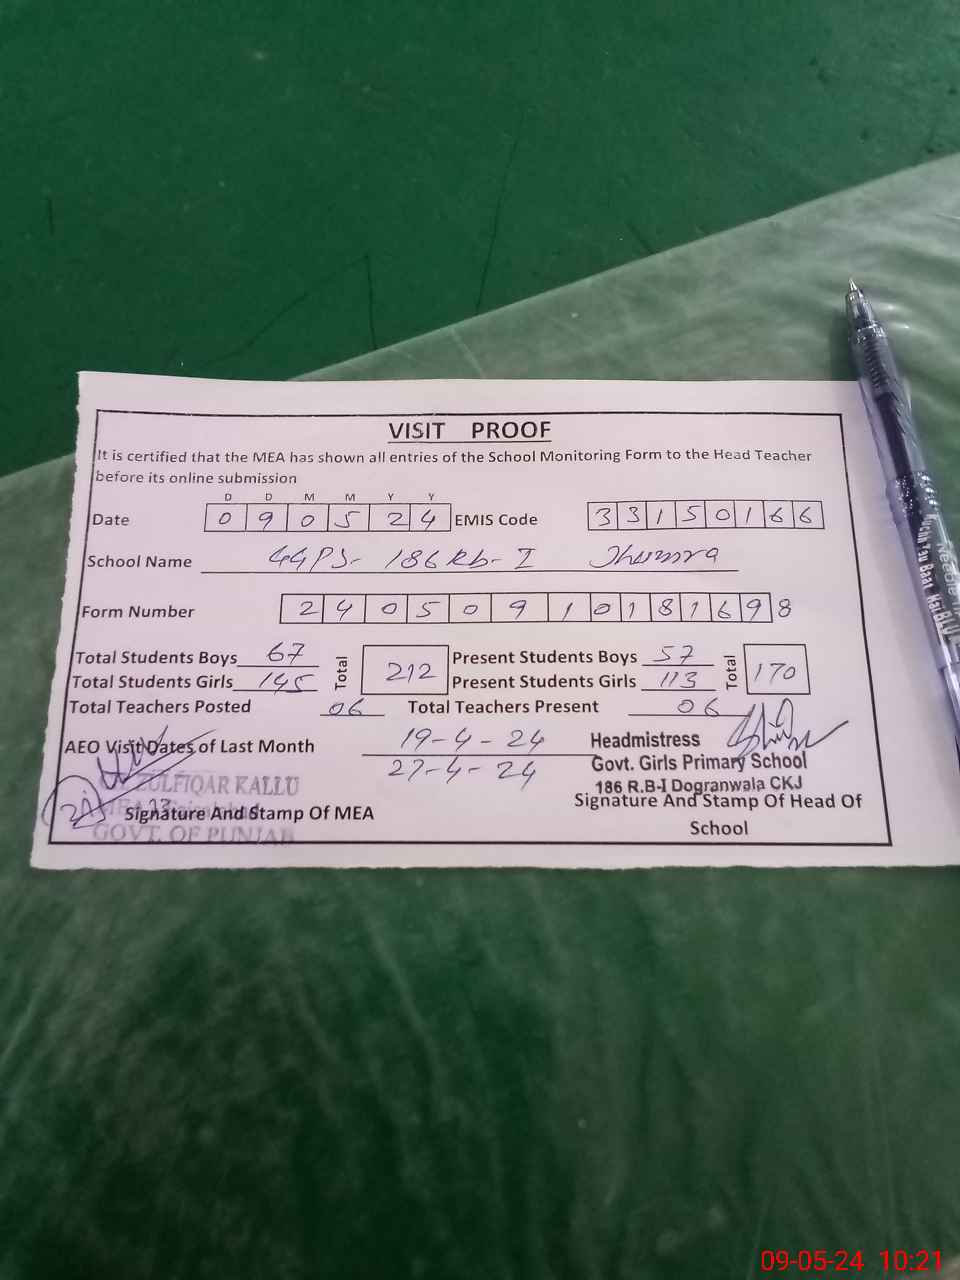 VISIT PROOF
It is certified that the MEA has shown all entries of the School Monitoring Form to the Head Teacher
before its online submission
D D M M Y Y
Date 0 9 0 5 2 4 EMIS Code 3 3 1 5 0 1 6 6
School Name GGPS- 186 Rb- I Jhumra
Form Number 2 4 0 5 0 9 1 0 1 8 1 6 9 8
Total Students Boys 67 Total 212 Present Students Boys 57 Total 170
Total Students Girls 145 Present Students Girls 113
Total Teachers Posted 06 Total Teachers Present 06
AEO Visit Dates of Last Month 19-4-24
27-4-24
Headmistress
Govt. Girls Primary School
186 R.B-I Dogranwala CKJ
ZULFIQAR KALLU
MEA
GOVT. OF PUNJAB
Signature And Stamp Of MEA
Signature And Stamp Of Head Of
School
Kuchh Tau Baat Hai BLU
Needle
09-05-24 10:21